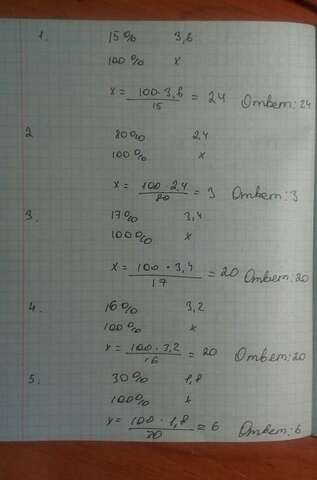 1. 15% 3,6
100% x
x = 100·3,6 / 15 = 24 Ответ: 24
2 80% 2,4
100% x
x = 100·2,4 / 80 = 3 Ответ: 3
3. 17% 3,4
100% x
x = 100·3,4 / 17 = 20 Ответ: 20
4. 16% 3,2
100% x
x = 100·3,2 / 16 = 20 Ответ: 20
5. 30% 1,8
100% x
x = 100·1,8 / 30 = 6 Ответ: 6